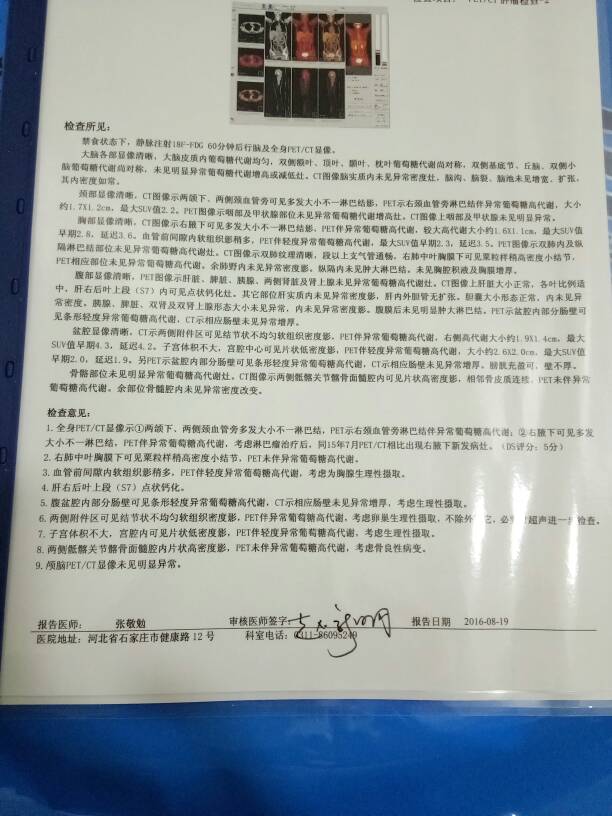 检查所见:
禁食状态下,静脉注射18F-FDG 60分钟后行脑及全身PET/CT显像。
大脑各部显像清晰,大脑皮质内葡萄糖代谢均匀,双侧额叶、顶叶、颞叶、枕叶葡萄糖代谢尚对称,双侧基底节、丘脑、双侧小
脑葡萄糖代谢尚对称,未见明显异常葡萄糖代谢增高或减低灶。CT图像脑实质内未见异常密度灶,脑沟、脑裂、脑池未见增宽、扩张,
其内密度如常。
颈部显像清晰,CT图像示两颌下、两侧颈血管旁可见多发大小不一淋巴结影,PET示右颈血管旁淋巴结异常葡萄糖高代谢,大小
约1.7X1.2cm,最大SUV值2.2。PET图像示咽部及甲状腺部位未见异常葡萄糖代谢增高灶。CT图像上咽部及甲状腺未见明显异常。
胸部显像清晰,CT图像示右腋下可见多发大小不一淋巴结影,PET伴异常葡萄糖高代谢,较大高代谢大小约1.6X1.1cm,最大SUV值
早期2.8,延迟3.6。血管前间隙内软组织影稍多,PET伴轻度异常葡萄糖高代谢,最大SUV值早期2.3,延迟3.5。PET图像示双肺内及纵
隔淋巴结部位未见异常葡萄糖代谢灶。CT图像示双肺纹理清晰,段以上支气管通畅,右肺中叶胸膜下可见粟粒样稍高密度小结节,
PET相应部位未见异常葡萄糖高代谢。余肺野内未见异常密度影,纵隔内未见肿大淋巴结,未见胸腔积液及胸膜增厚。
腹部显像清晰,PET图像示肝脏、脾脏、胰腺、两侧肾脏及肾上腺未见异常葡萄糖代谢灶。CT图像上肝脏大小正常,各叶比例适
中,肝右后叶上段(S7)内可见点状钙化灶。其它部位肝实质内未见异常密度影,肝内外胆管无扩张。胆囊大小形态正常,内未见异
常密度。胰腺、脾脏、双肾及双肾上腺形态大小未见异常,内未见异常密度影。腹膜后未见明显肿大淋巴结。PET示盆腔内部分肠壁可
见条形轻度异常葡萄糖高代谢,CT示相应肠壁未见异常增厚。
盆腔显像清晰,CT示两侧附件区可见结节状不均匀软组织密度影,PET伴异常葡萄糖高代谢,右侧高代谢大小约1.9X1.4cm,最大
SUV值早期4.3,延迟4.2。子宫体积不大,宫腔中心可见片状低密度影,PET伴轻度异常葡萄糖高代谢,大小约2.6X2.0cm,最大SUV值
早期2.0,延迟1.9。另PET示盆腔内部分肠壁可见条形轻度异常葡萄糖高代谢,CT示相应肠壁未见异常增厚。膀胱充盈可,壁不厚。
骨骼部位未见明显异常葡萄糖高代谢灶。CT图像示两侧骶髂关节髂骨面髓腔内可见片状高密度影,相邻骨皮质连续,PET未伴异常
葡萄糖高代谢。余部位骨髓腔内未见异常密度改变。
检查意见:
1.全身PET/CT显像示①两颌下、两侧颈血管旁多发大小不一淋巴结,PET示右颈血管旁淋巴结伴异常葡萄糖高代谢;②右腋下可见多发
大小不一淋巴结,PET伴异常葡萄糖高代谢,考虑淋巴瘤治疗后,同15年7月PET/CT相比出现右腋下新发病灶。(DS评分:5分)
2.右肺中叶胸膜下可见粟粒样稍高密度小结节,PET未伴异常葡萄糖高代谢。
3.血管前间隙内软组织影稍多,PET伴轻度异常葡萄糖高代谢,考虑为胸腺生理性摄取。
4.肝右后叶上段(S7)点状钙化。
5.腹盆腔内部分肠壁可见条形轻度异常葡萄糖高代谢,CT示相应肠壁未见异常增厚,考虑生理性摄取。
6.两侧附件区可见结节状不均匀软组织密度影,PET伴异常葡萄糖高代谢,考虑卵巢生理性摄取,不除外其它,必要时超声进一步检查。
7.子宫体积不大,宫腔内可见片状低密度影,PET伴轻度异常葡萄糖高代谢,考虑生理性摄取。
8.两侧骶髂关节髂骨面髓腔内片状高密度影,PET未伴异常葡萄糖高代谢,考虑骨良性病变。
9.颅脑PET/CT显像未见明显异常。
报告医师: 张敬勉 审核医师签字: 报告日期 2016-08-19
医院地址:河北省石家庄市健康路12号 科室电话:0311-86095249